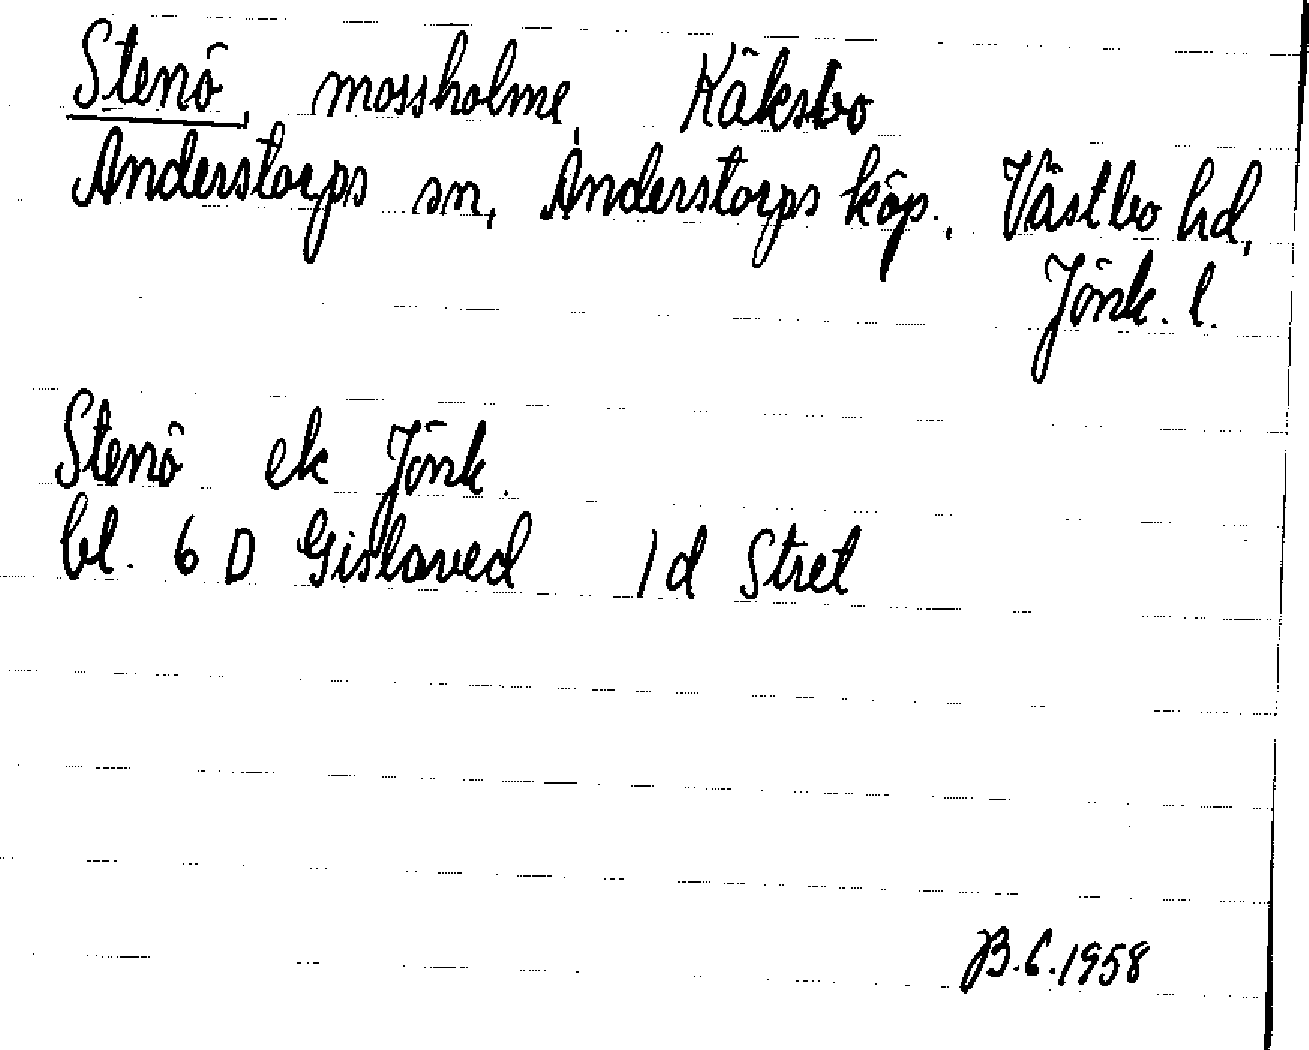 Stenö, mossholme, Käksbo
Anderstorps sn, Anderstorps köp., Västbo hd,
Jönk. l.
Stenö ek Jönk.
bl. 6 D Gislaved 1d Stret
B.C. 1958